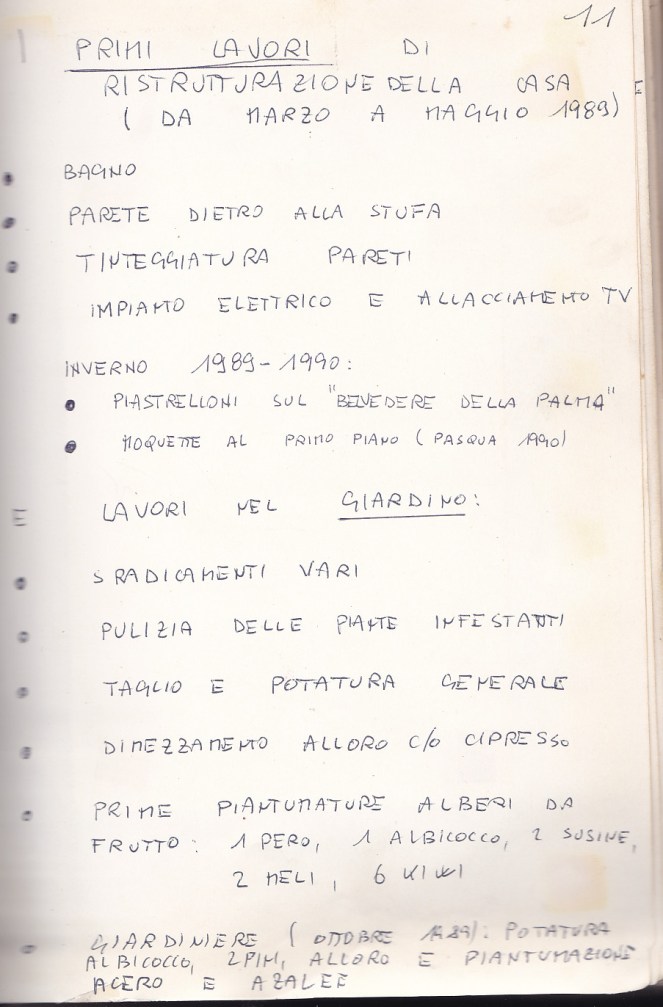 11
PRIMI LAVORI DI
RISTRUTTURAZIONE DELLA CASA
( DA MARZO A MAGGIO 1989)
E
• BAGNO
• PARETE DIETRO ALLA STUFA
• TINTEGGIATURA PARETI
• IMPIANTO ELETTRICO E ALLACCIAMENTO TV
INVERNO 1989-1990:
• PIASTRELLONI SUL "BELVEDERE DELLA PALMA"
• MOQUETTE AL PRIMO PIANO ( PASQUA 1990)
E LAVORI NEL GIARDINO:
• SRADICAMENTI VARI
• PULIZIA DELLE PIANTE INFESTANTI
• TAGLIO E POTATURA GENERALE
• DIMEZZAMENTO ALLORO C/O CIPRESSO
• PRIME PIANTUMATURE ALBERI DA
FRUTTO: 1 PERO, 1 ALBICOCCO, 2 SUSINE,
2 MELI, 6 KIWI
• GIARDINIERE ( OTTOBRE 1989): POTATURA
ALBICOCCO, 2 PINI, ALLORO E PIANTUMAZIONE
ACERO E AZALEE